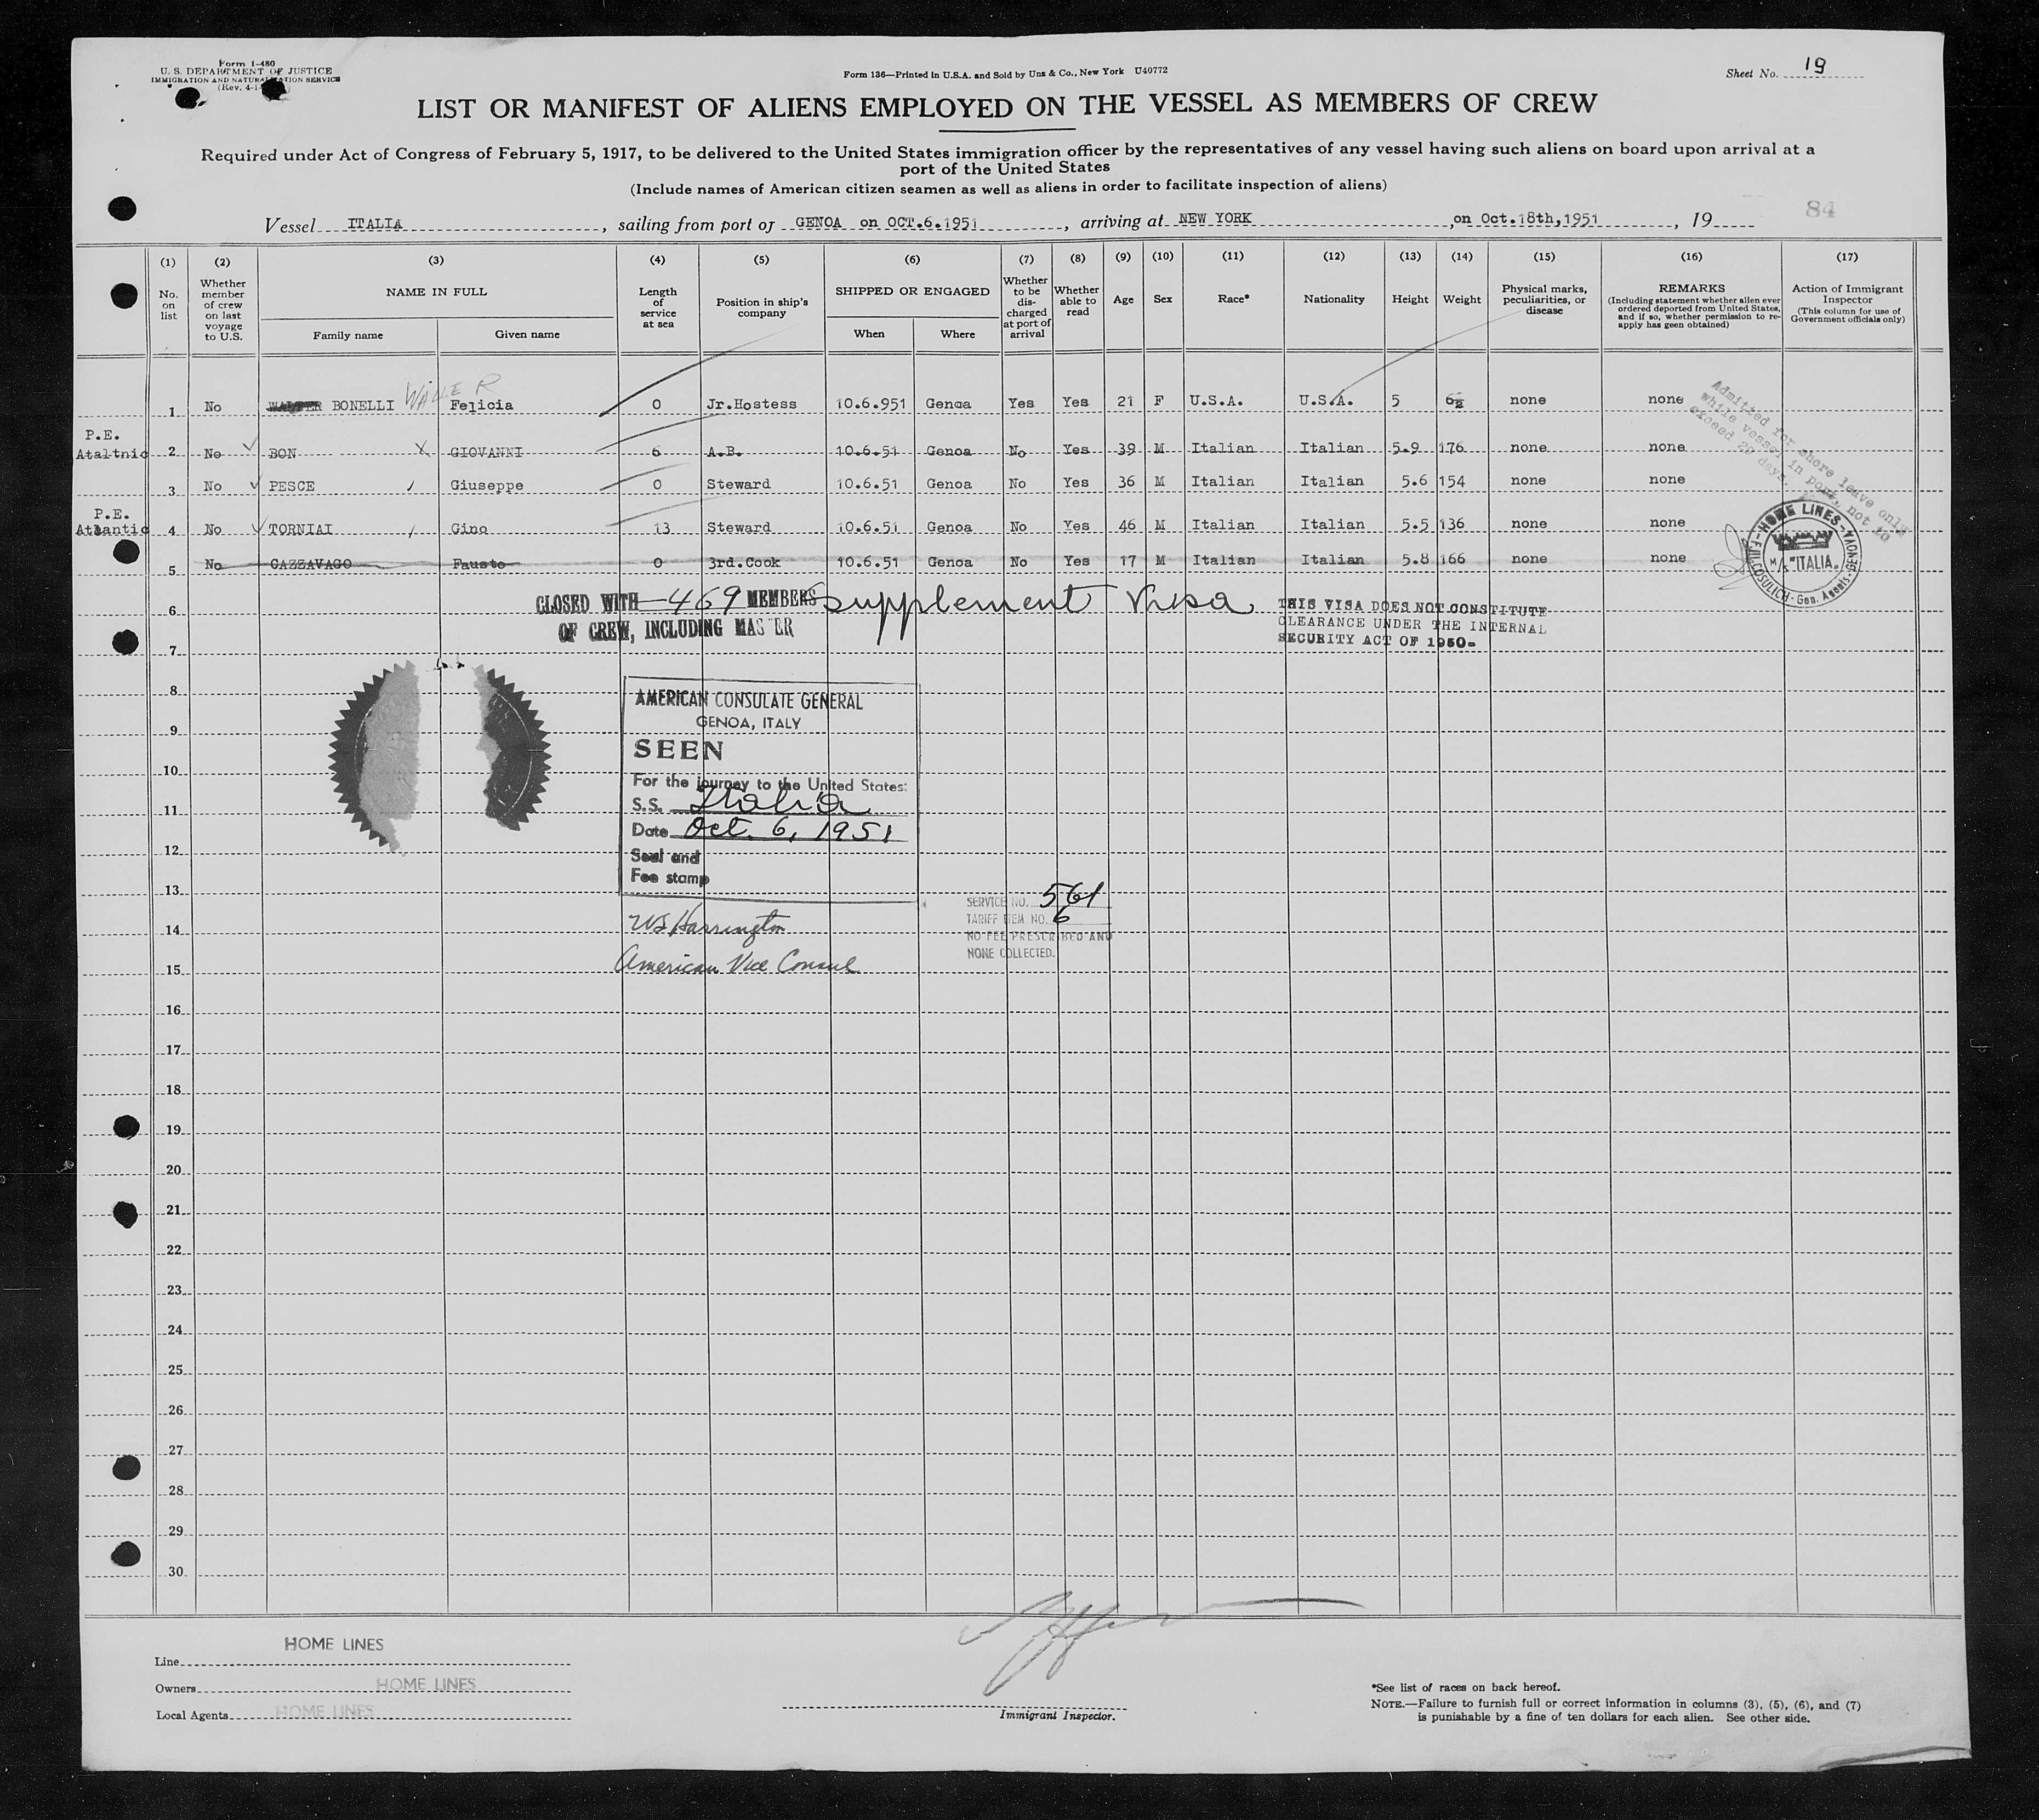 Form I-480
U. S. DEPARTMENT OF JUSTICE
IMMIGRATION AND NATURALIZATION SERVICE
(Rev. 4-1-
Form 136—Printed in U.S.A. and Sold by Unz & Co., New York U40772
Sheet No. 19
LIST OR MANIFEST OF ALIENS EMPLOYED ON THE VESSEL AS MEMBERS OF CREW
Required under Act of Congress of February 5, 1917, to be delivered to the United States immigration officer by the representatives of any vessel having such aliens on board upon arrival at a
port of the United States
(Include names of American citizen seamen as well as aliens in order to facilitate inspection of aliens)
84
Vessel ITALIA, sailing from port of GENOA on OCT.6.1951, arriving at NEW YORK, on Oct.18th,1951, 19
(1) (2) (3) (4) (5) (6) (7) (8) (9) (10) (11) (12) (13) (14) (15) (16) (17)
No. on list
Whether member of crew on last voyage to U.S.
NAME IN FULL
Family name
Given name
Length of service at sea
Position in ship's company
SHIPPED OR ENGAGED
When
Where
Whether to be discharged at port of arrival
Whether able to read
Age
Sex
Race*
Nationality
Height
Weight
Physical marks, peculiarities, or disease
REMARKS
(Including statement whether alien ever ordered deported from United States, and if so, whether permission to re-apply has geen obtained)
Action of Immigrant Inspector
(This column for use of Government officials only)
WALLER
1 No BONELLI Felicia 0 Jr.Hostess 10.6.951 Genoa Yes Yes 21 F U.S.A. U.S.A. 5 none none
P.E.
Ataltnic 2 No BON X GIOVANNI 6 A.B. 10.6.51 Genoa No Yes 39 M Italian Italian 5.9 176 none none
3 No PESCE Giuseppe 0 Steward 10.6.51 Genoa No Yes 36 M Italian Italian 5.6 154 none none
P.E.
Atlantic 4 No TORNIAI Gino 13 Steward 10.6.51 Genoa No Yes 46 M Italian Italian 5.5 136 none none
5 No CAZZAVAGO Fausto 0 3rd.Cook 10.6.51 Genoa No Yes 17 M Italian Italian 5.8 166 none none
Admitted for shore leave only
while vessel in port, not to
exceed 29 days.
HOME LINES - GENOVA - F.lli COSULICH - Gen. Agents
M/s "ITALIA"
CLOSED WITH 469 MEMBERS
OF CREW, INCLUDING MASTER
supplement Visa
THIS VISA DOES NOT CONSTITUTE
CLEARANCE UNDER THE INTERNAL
SECURITY ACT OF 1950-
6
7
8
AMERICAN CONSULATE GENERAL
GENOA, ITALY
9
SEEN
10
For the journey to the United States:
S.S. Italia
11
Date Oct. 6, 1951
12
Seal and
Fee stamp
13
SERVICE NO. 561
TARIFF ITEM NO. 6
NO FEE PRESCRIBED AND
NONE COLLECTED.
14
WS Harrington
American Vice Consul
15
16
17
18
19
20
21
22
23
24
25
26
27
28
29
30
Line HOME LINES
Owners HOME LINES
Local Agents HOME LINES
Immigrant Inspector.
*See list of races on back hereof.
NOTE.—Failure to furnish full or correct information in columns (3), (5), (6), and (7)
is punishable by a fine of ten dollars for each alien. See other side.